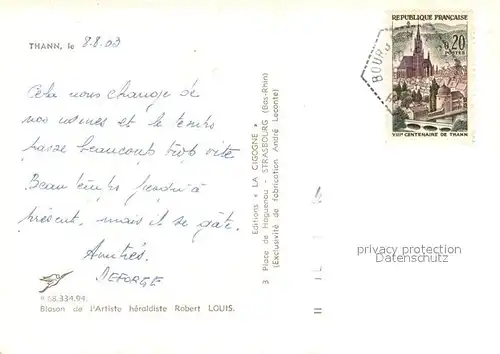 THANN, le 8.8.03
Cela nous change de
nos usines et le temps
passe beaucoup trop vite
Beau temps jusqu'à
présent, mais il se gâte.
Amitiés.
DEFORGE
* 68.334.94.
Blason de l'Artiste héraldiste Robert LOUIS.
Editions " LA CIGOGNE "
3 Place de Haguenau - STRASBOURG (Bas-Rhin)
(Exclusivité de fabrication André Leconte)
REPUBLIQUE FRANÇAISE
0,20
POSTES
VIIIe CENTENAIRE DE THANN
BOURB
privacy protection
Datenschutz